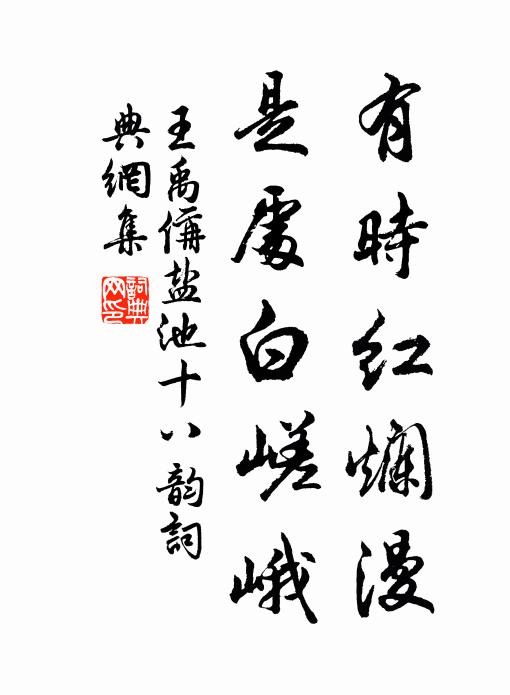 有時紅爛漫
是處白嵯峨
王禹偁盐池十八韵詞
典網集
詞典
网印